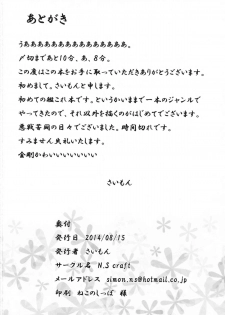 あとがき
うああああああああああああああ。
〆切まであと10分、あ、8分。
この度はこの本をお手に取っていただきありがとうございます。
初めまして。さいもんと申します。
初めての艦これ本です。というかいままで一本のジャンルで
やってきたので、それ以外を描くのがはじめてでございます。
悪戦苦闘の日々でございました。時間切れです。
すみません失礼いたします。
金剛かわいいいいいいい
さいもん
奥付
発行日 2014/08/15
発行者 さいもん
サークル名 N.S craft
メールアドレス simon.ns@hotmail.co.jp
印刷 ねこのしっぽ 様